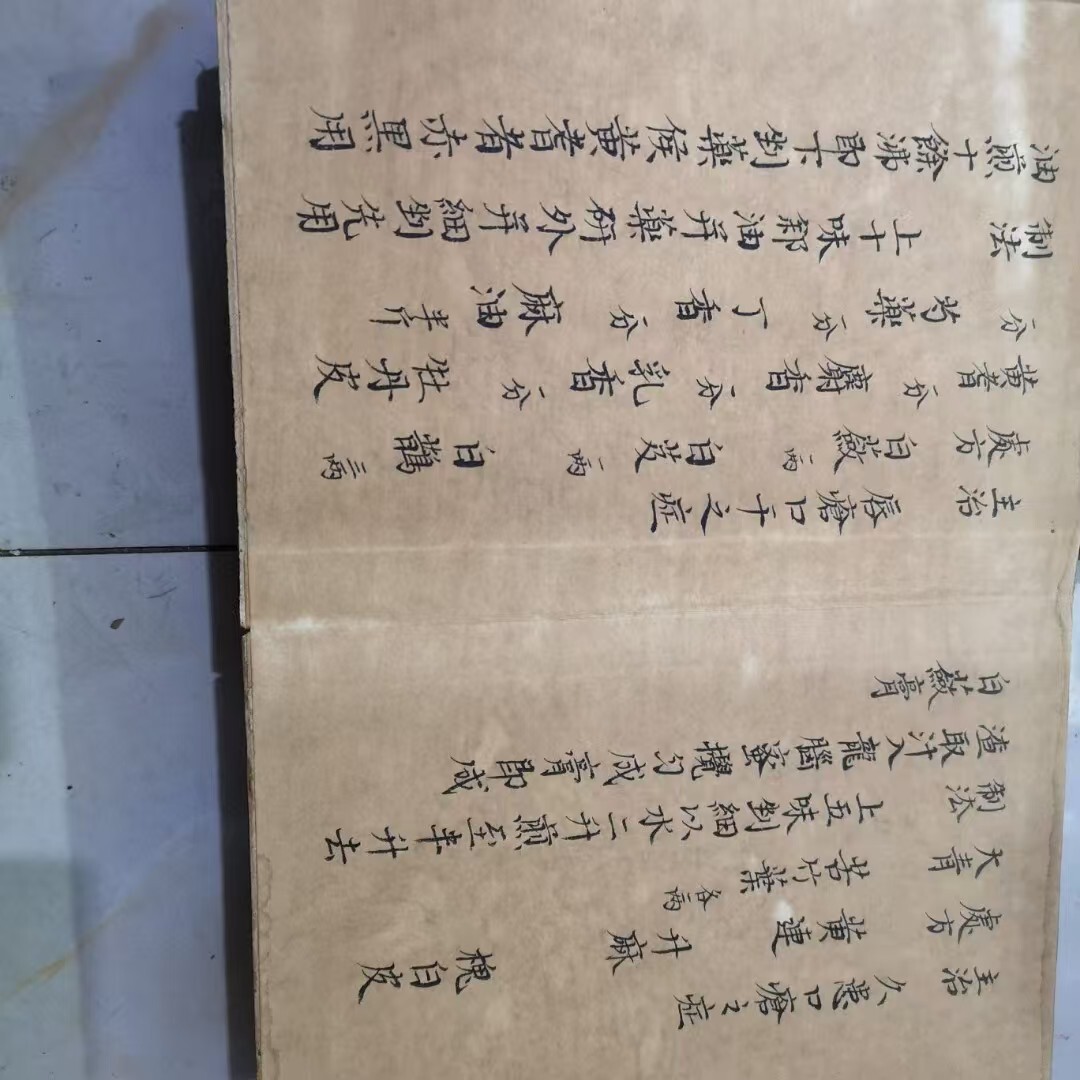 主治 久患口瘡之症
處方 黄連 升麻 槐白皮
大青 苦竹葉 各一兩
制法 上五味剉細以水二升煎至半升去
渣取汁入龍腦蜜攪勻成膏即成
白蘞膏
主治 唇瘡口干之症
處方 白蘞 一兩 白芨 一兩 白 三兩
黄耆 一分 麝香 一分 乳香 一分 牡丹皮
一分 芍藥 一分 丁香 一分 麻油 半斤
制法 上十味油并藥研外并細剉先用
油煎十餘沸即下剉藥候黄耆者赤黑用